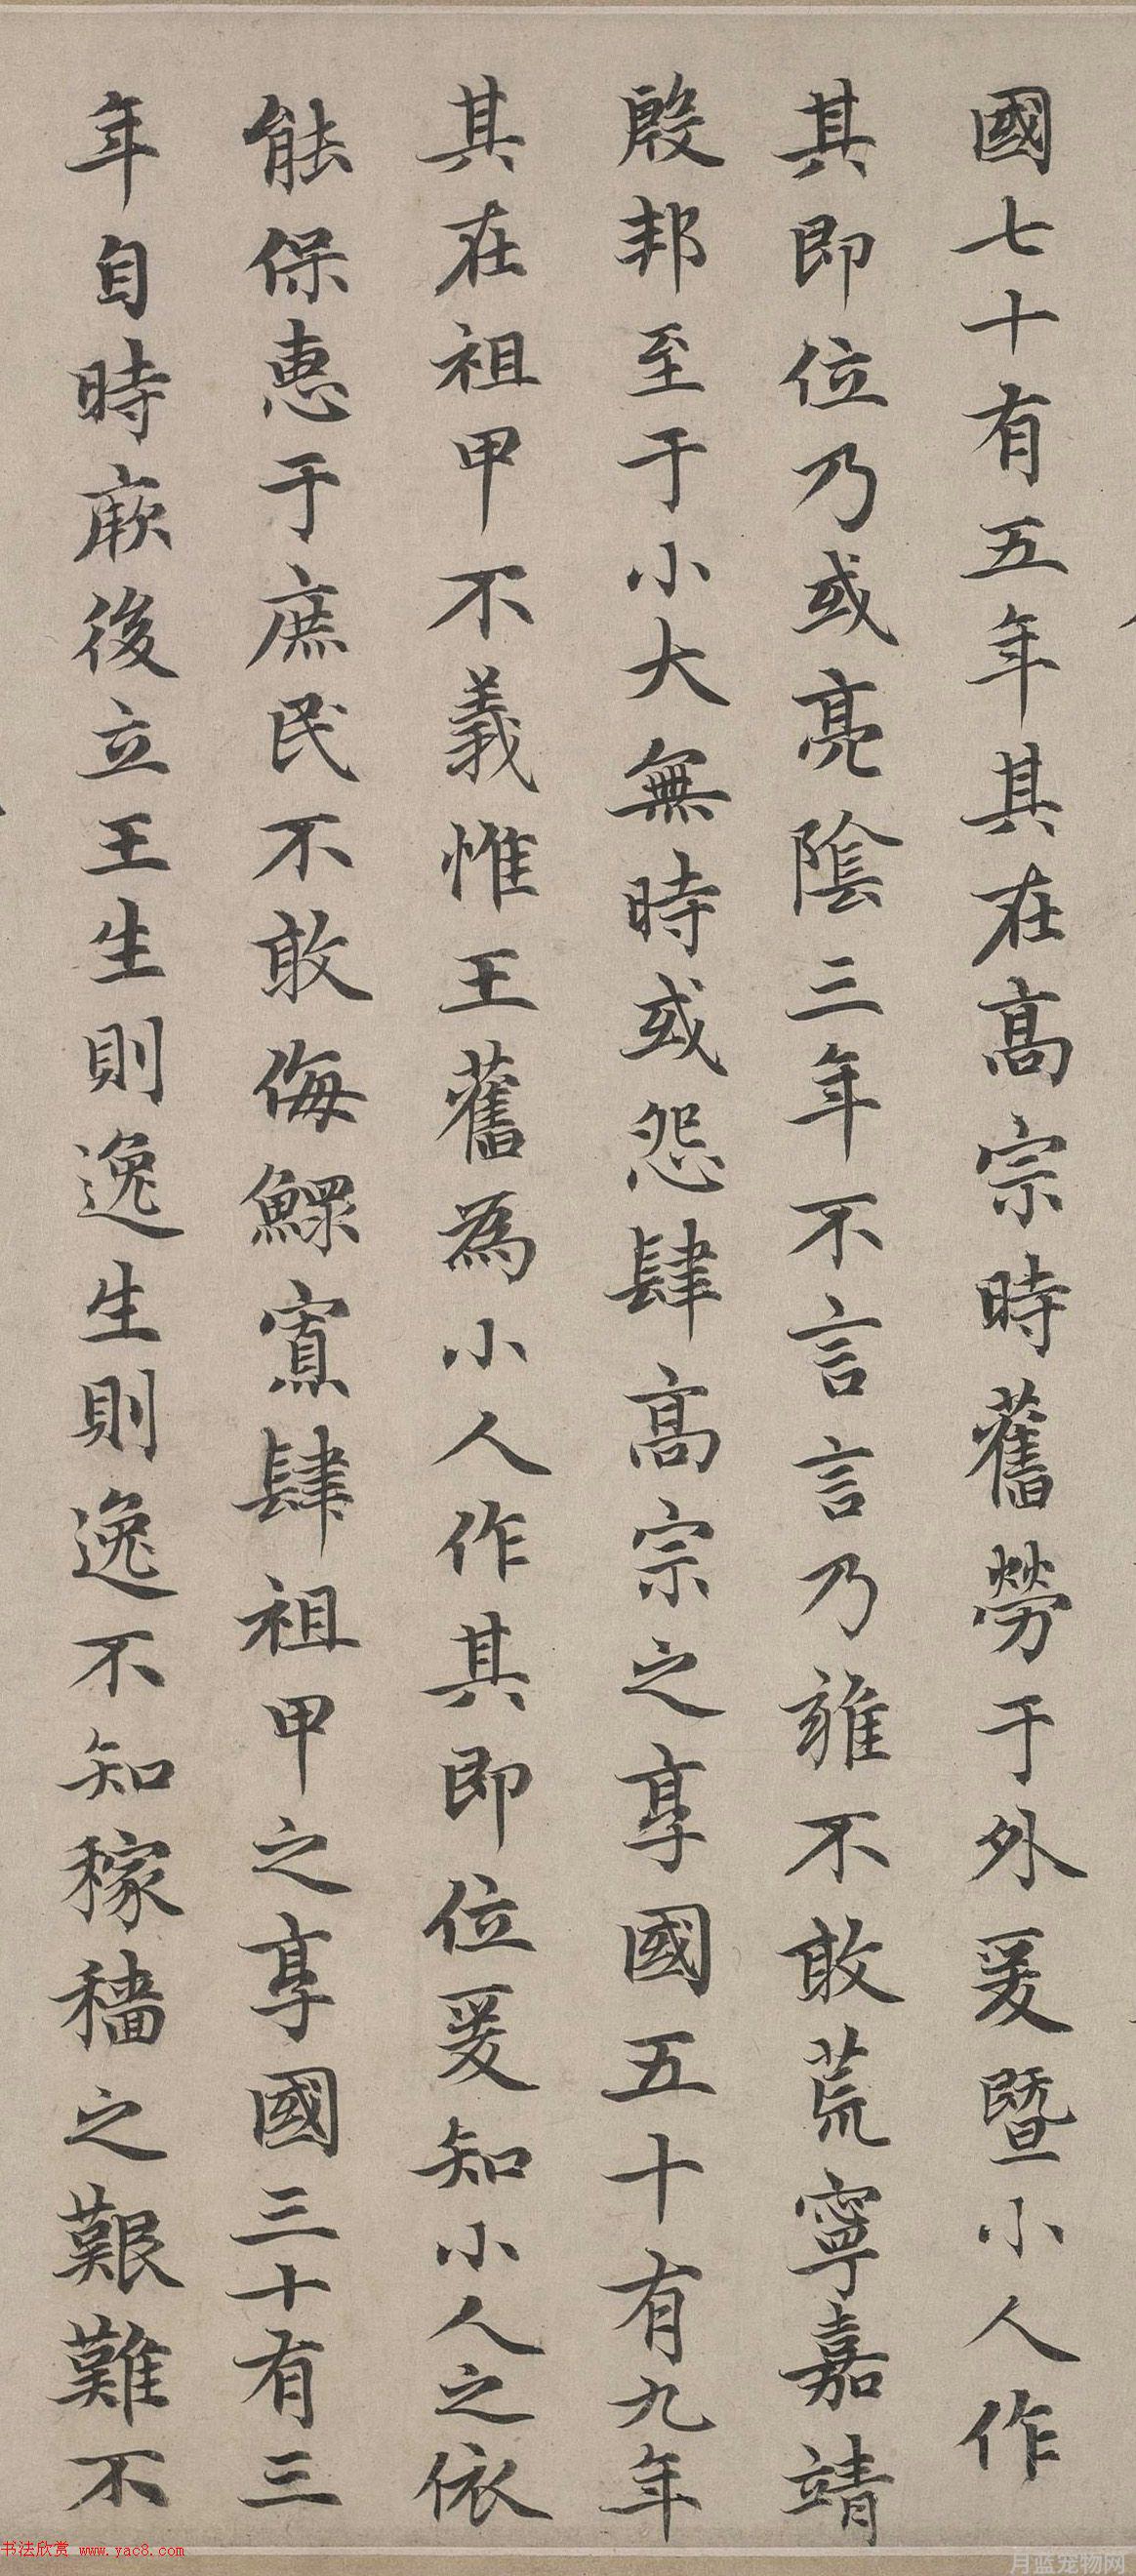 國七十有五年其在高宗時舊勞于外爰暨小人作
其即位乃或亮陰三年不言言乃雍不敢荒寧嘉靖
殷邦至于小大無時或怨肆高宗之享國五十有九年
其在祖甲不義惟王舊為小人作其即位爰知小人之依
能保惠于庶民不敢侮鰥寡肆祖甲之享國三十有三
年自時厥後立王生則逸生則逸不知稼穡之艱難不
书法欣赏 www.yac8.com
月蓝宠物网